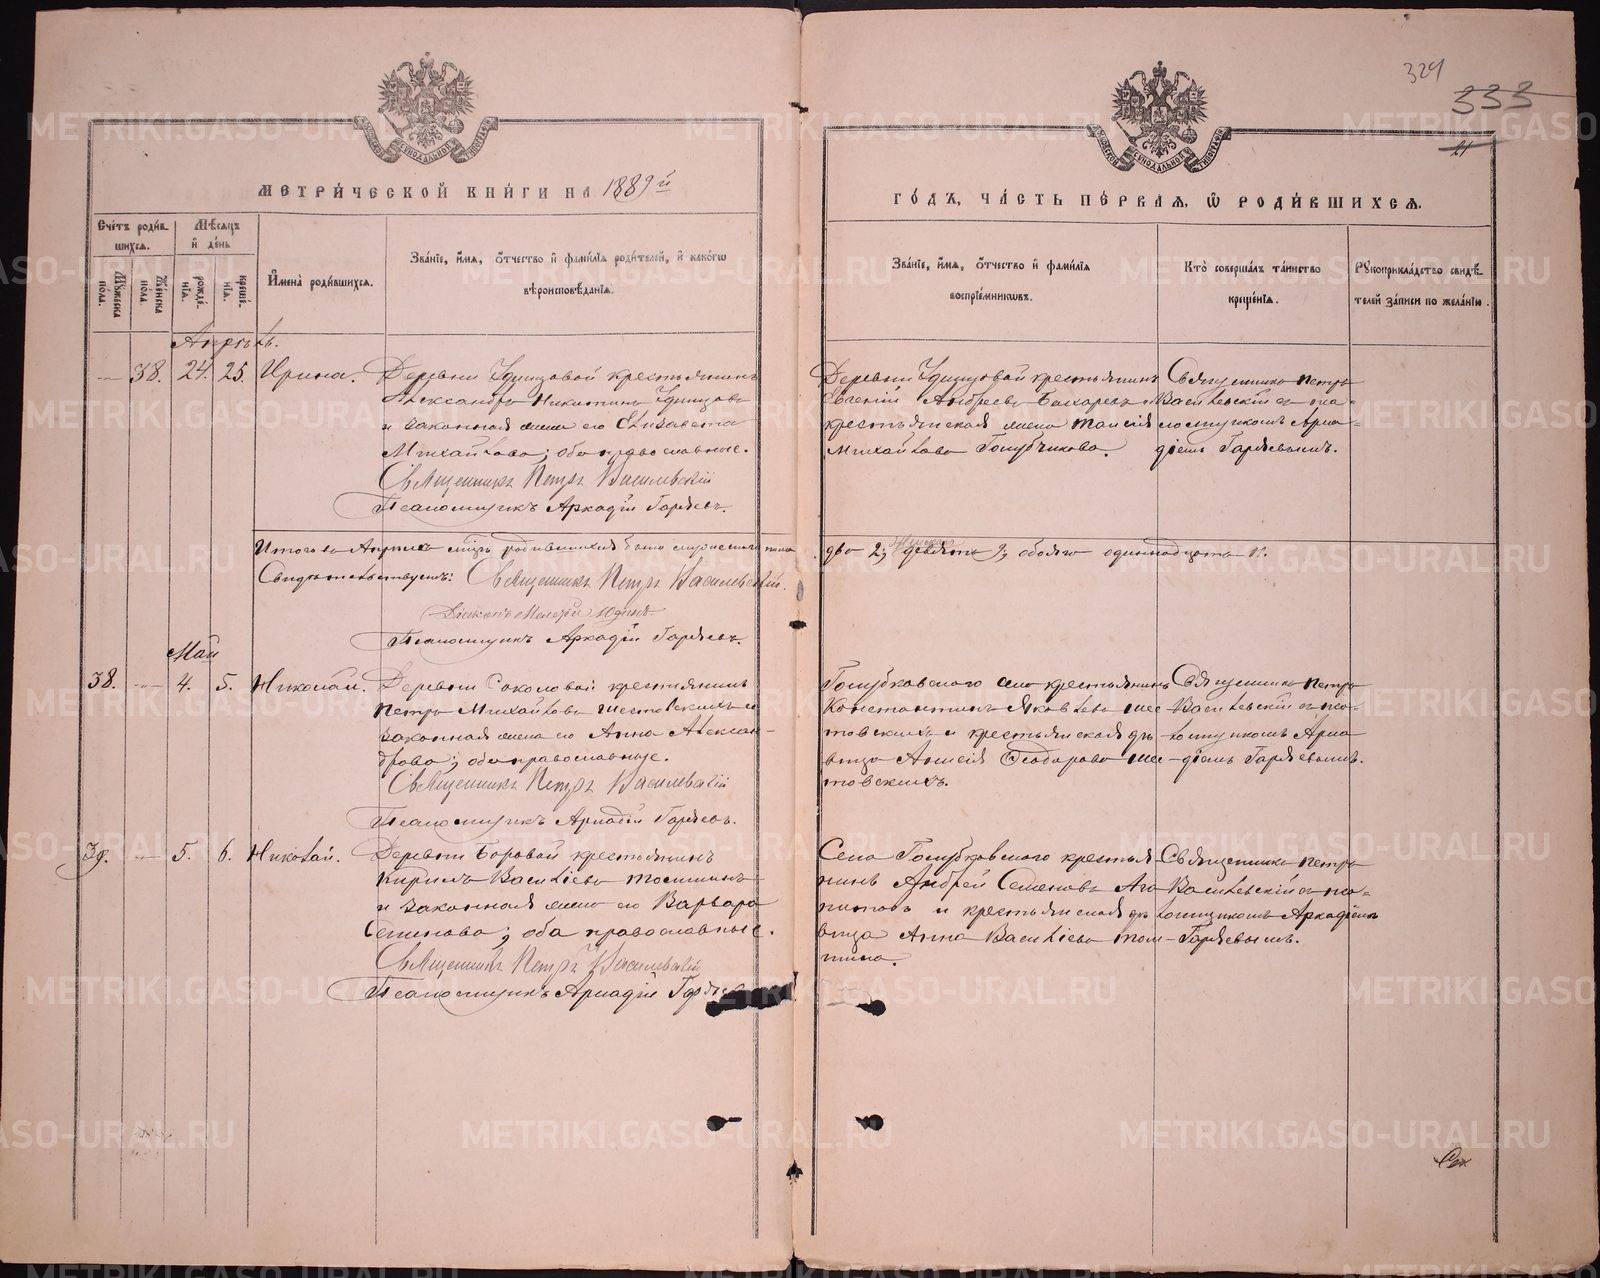 329
333
21
МОСКОВСКОЙ СѴНОДАЛЬНОЙ ТИПОГРАФІИ
МОСКОВСКОЙ СѴНОДАЛЬНОЙ ТИПОГРАФІИ
МЕТРИ́ЧЕСКОЙ КНИ́ГИ НА 1889й
ГО́ДЪ, ЧА́СТЬ ПЕ́РВАЯ, Ѿ РОДИ́ВШИХСЯ.
Сче́тъ роди́вшихся.
Мѣ́сяцъ и҆ де́нь
Мꙋ́жеска по́ла.
Же́нска по́ла.
рожде́нія.
креще́нія.
И҆мена̀ роди́вшихся.
Зва́ніе, и҆́мя, ѻ҆́тчество и҆ фами́лія роди́телей, и҆ како́гѡ
вѣроисповѣ́данія.
Зва́ніе, и҆́мя, ѻ҆́тчество и҆ фами́лія
воспріе́мникѡвъ.
Кто̀ соверша́лъ та́инство
креще́нія.
Рꙋкоприкла́дство свидѣ́-
телей за́писи по жела́нію.
Апрѣль.
— 38. 24. 25. Ирина.
Деревни крестьянинъ
Александръ Никитинъ
и законная жена его Елисавета
Михайлова; оба православные.
Священникъ Петръ Василевскій
Псаломщикъ Аркадій Гаряевъ.
Деревни крестьянинъ
Евгеній Андреевъ Бахаревъ и
крестьянская жена Таисія
Михайлова Голубчикова.
Священникъ Петръ
Василевскій съ пса-
ломщикомъ Арка-
діемъ Гаряевымъ.
Итого въ Апрѣлѣ мцѣ родившихся было мужескаго пола
два 2; женскаго девять 9; обоего одиннадцать 11.
Свидѣтельствуемъ: Священникъ Петръ Василевскій.
Діаконъ Юдинъ.
Псаломщикъ Аркадій Гаряевъ.
Май
38. — 4. 5. Николай.
Деревни Соколовой крестьянинъ
Петръ Михайловъ Шестовскихъ и
законная жена его Анна Алексан-
дрова; оба православные.
Священникъ Петръ Василевскій
Псаломщикъ Аркадій Гаряевъ.
Голубковского села крестьянинъ
Константинъ Яковлевъ Шес-
товскихъ и крестьянская дѣ-
вица Анисія Ѳеодорова Шес-
товскихъ.
Священникъ Петръ
Василевскій съ пса-
ломщикомъ Арка-
діемъ Гаряевымъ.
39. — 5. 6. Николай.
Деревни Боровой крестьянинъ
Кирилъ Василіевъ Томшинъ
и законная жена его Варвара
Семенова; оба православные.
Священникъ Петръ Василевскій
Псаломщикъ Аркадій Гаряевъ
Села Голубковского крестья-
нинъ Андрей Семеновъ Ага-
питовъ и крестьянская дѣ-
вица Анна Василіева Том-
шина.
Священникъ Петръ
Василевскій съ пса-
ломщикомъ Аркадіемъ
Гаряевымъ.
METRIKI.GASO-URAL.RU